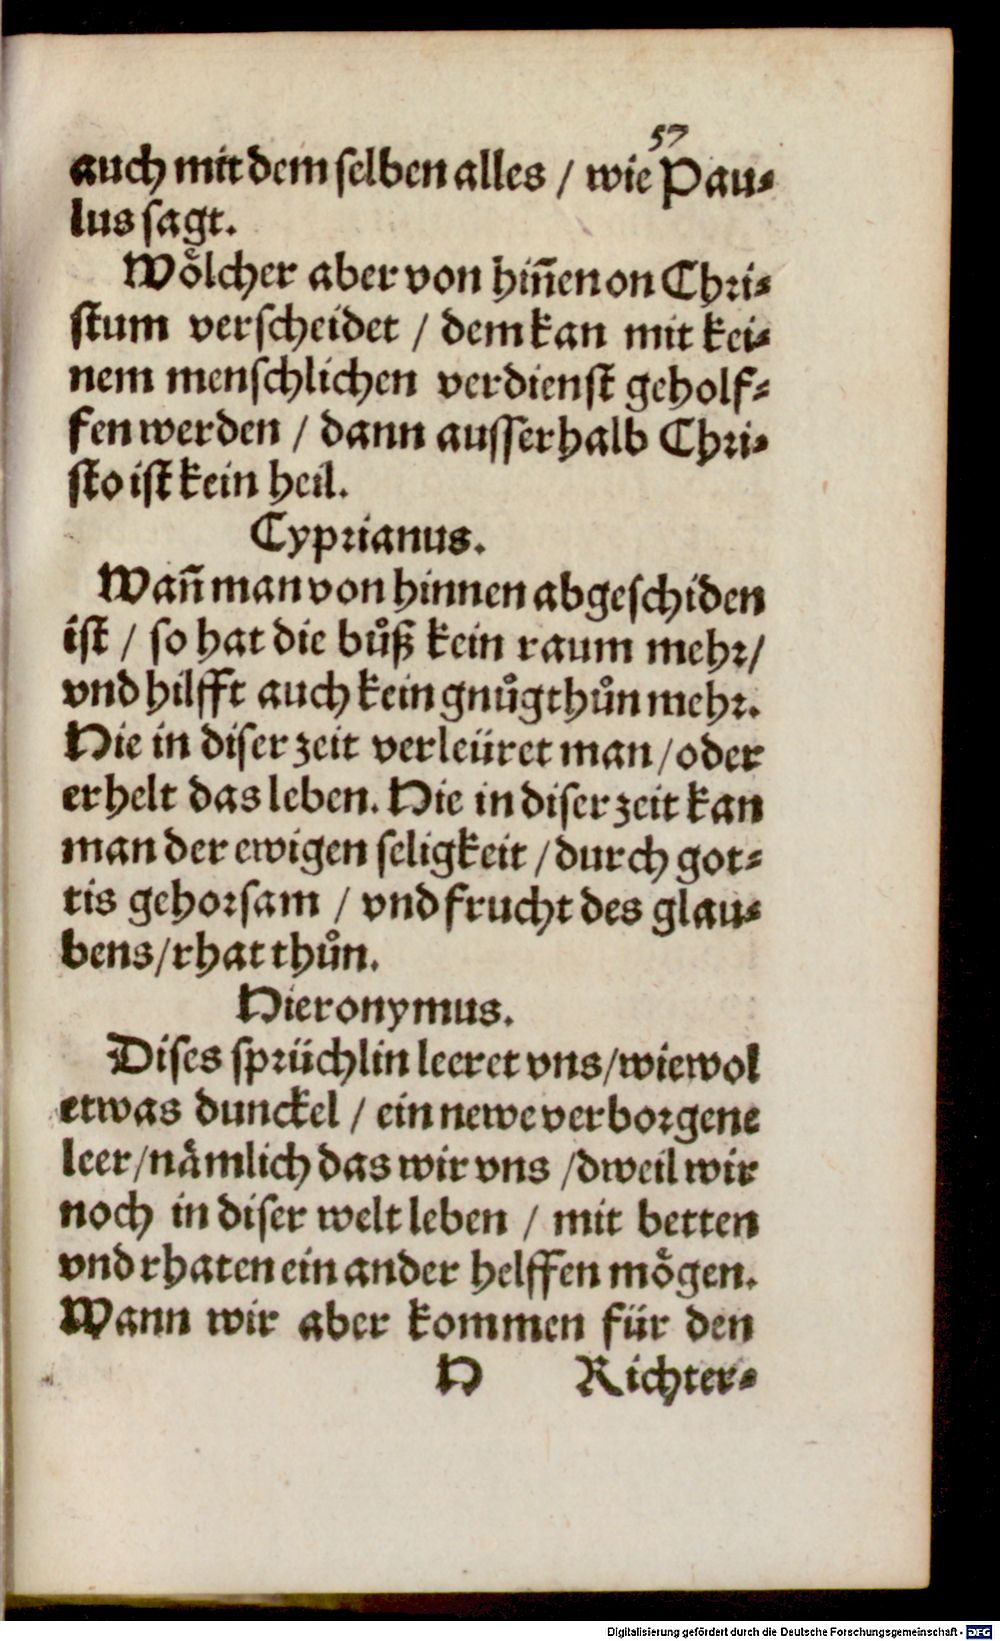 57
auch mit dem selben alles / wie Pau⸗
lus sagt.
Woͤlcher aber von hiñen on Chri⸗
stum verscheidet / dem kan mit kei⸗
nem menschlichen verdienst geholf⸗
fen werden / dann ausserhalb Chri⸗
sto ist kein heil.
Cyprianus.
Wañ man von hinnen abgeschiden
ist / so hat die buͦß kein raum mehr /
vnd hilfft auch kein gnuͦgthuͦn mehr.
Hie in diser zeit verleüret man / oder
erhelt das leben. Hie in diser zeit kan
man der ewigen seligkeit / durch got⸗
tis gehorsam / vnd frucht des glau⸗
bens / rhat thuͦn.
Hieronymus.
Dises sprüchlin leeret vns / wiewol
etwas dunckel / ein newe verborgene
leer / naͤmlich das wir vns / dweil wir
noch in diser welt leben / mit betten
vnd rhaten ein ander helffen moͤgen.
Wann wir aber kommen für den
H Richter⸗
Digitalisierung gefördert durch die Deutsche Forschungsgemeinschaft - DFG